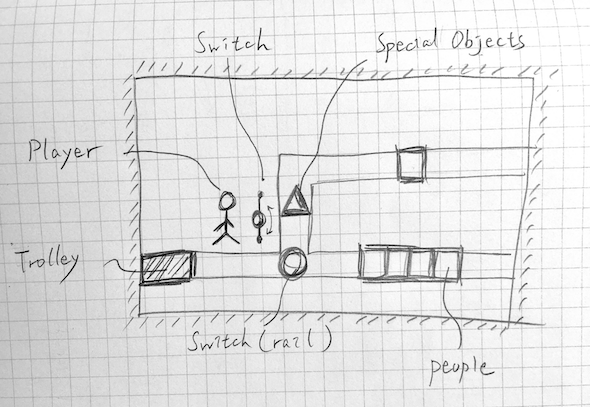 Switch
Special Objects
Player
Trolley
Switch (rail)
people